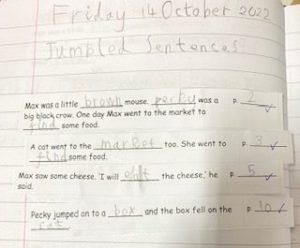 Friday 14 October 2022
Jumbled Sentences
Max was a little brown mouse. pecky was a p 2
big black crow. One day Max went to the market to
find some food.
A cat went to the market too. She went to p 3
find some food.
Max saw some cheese. 'I will eat the cheese,' he p 5
said.
Pecky jumped on to a box and the box fell on the p 10
cat